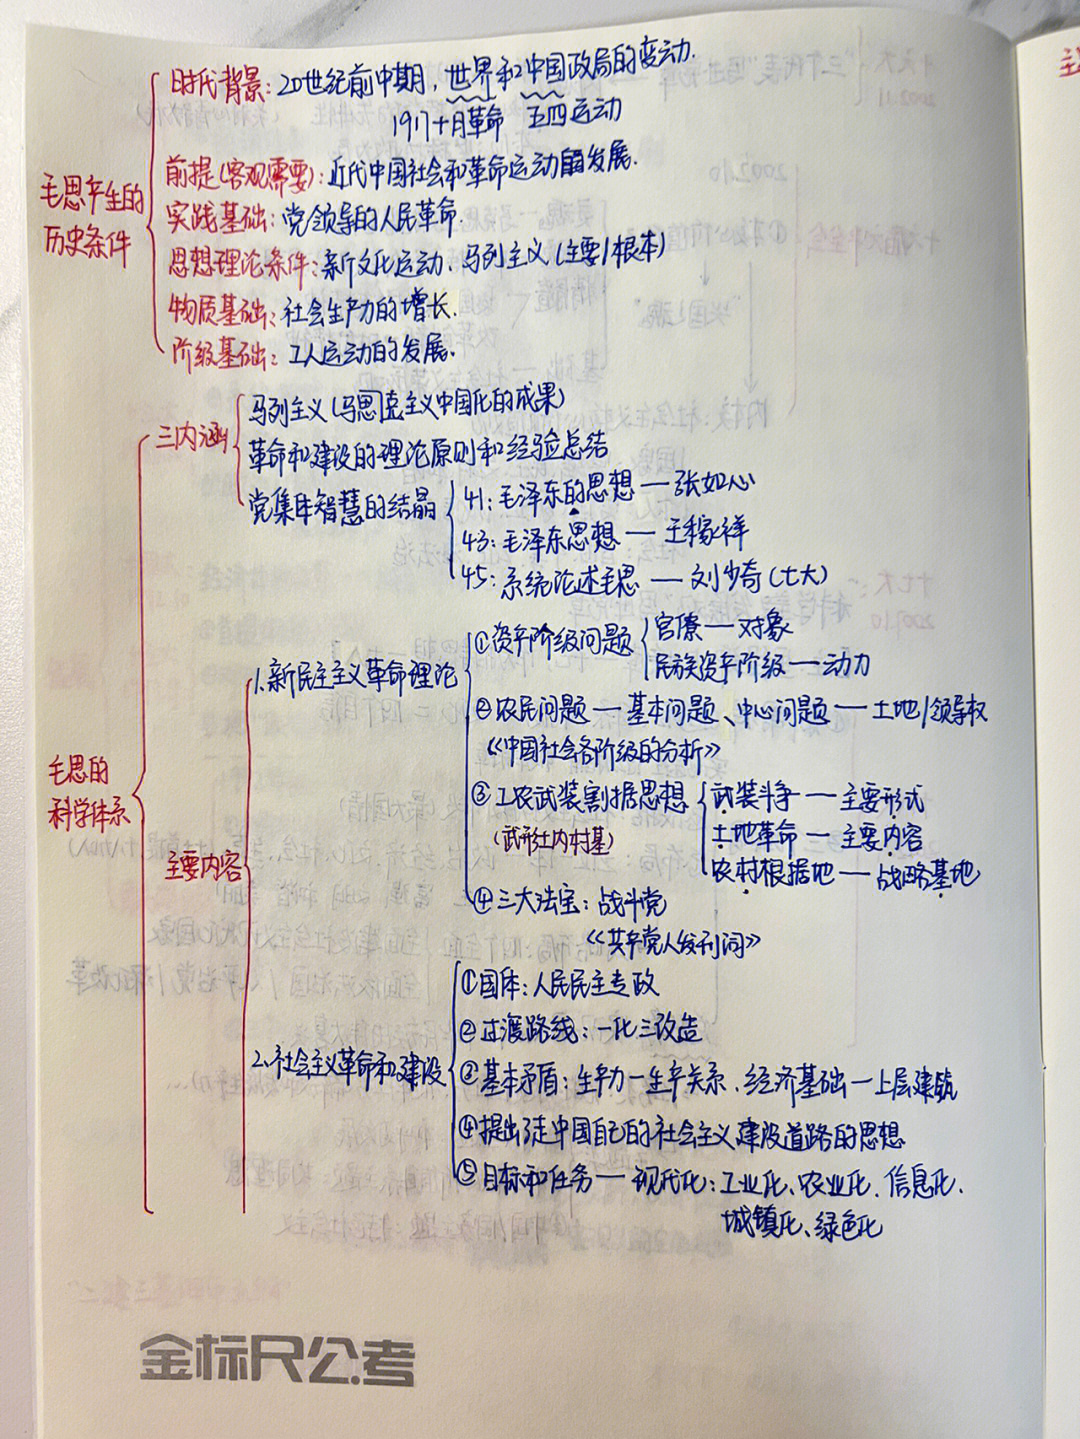 毛思产生的
历史条件
时代背景：20世纪前中期，世界和中国政局的变动.
1917十月革命 五四运动
前提(客观需要)：近代中国社会和革命运动的发展.
实践基础：党领导的人民革命.
思想理论条件：新文化运动、马列主义(主要/根本)
物质基础：社会生产力的增长.
阶级基础：工人运动的发展.
毛思的
科学体系
三内涵
马列主义(马思克主义中国化的成果)
革命和建设的理论原则和经验总结
党集体智慧的结晶
41：毛泽东的思想—张如心
43：毛泽东思想—王稼祥
45：系统论述毛思—刘少奇(七大)
主要内容
1.新民主主义革命理论
①资产阶级问题
官僚—对象
民族资产阶级—动力
②农民问题—基本问题、中心问题—土地/领导权
《中国社会各阶级的分析》
③工农武装割据思想
(武形土内村基)
武装斗争—主要形式
土地革命—主要内容
农村根据地—战略基地
④三大法宝：战斗党
《共产党人发刊词》
2.社会主义革命和建设
①国体：人民民主专政
②过渡路线：一化三改造
③基本矛盾：生产力—生产关系、经济基础—上层建筑
④提出走中国自己的社会主义建设道路的思想
⑤目标和任务—现代化：工业化、农业化、信息化、
城镇化、绿色化
金标尺公考